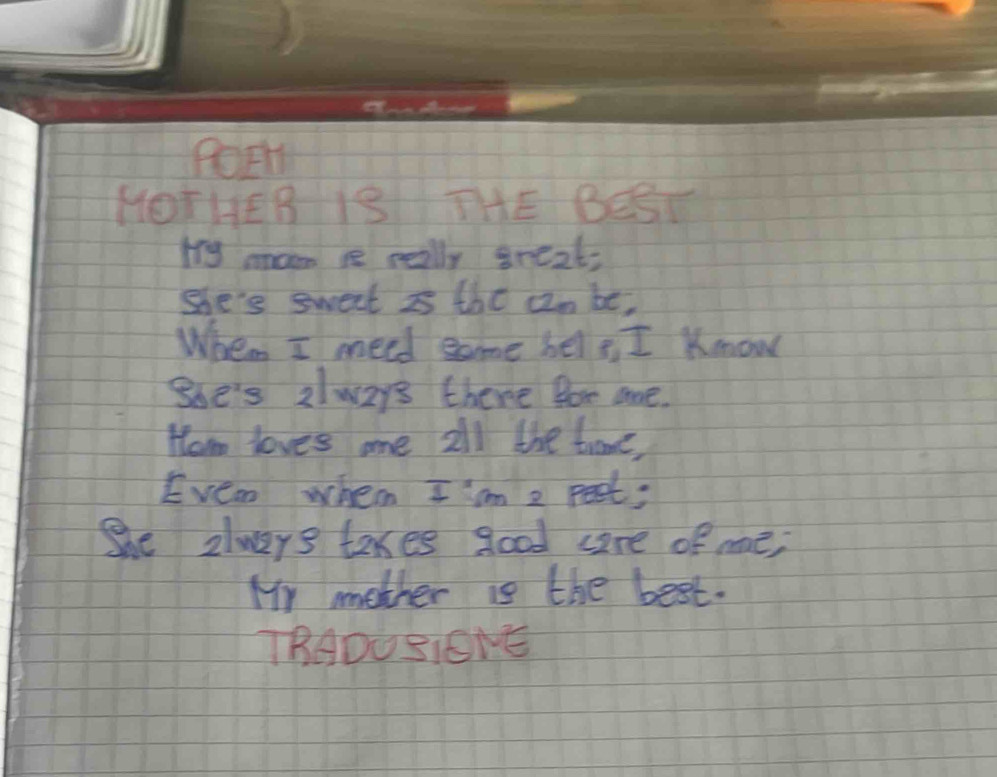 POEM
MOTHER IS THE BEST
My mom is really great;
She's sweet as the can be,
When I need some help, I Know
She's always there for me.
Mom loves me all the time,
Even when I'm a pest;
She always takes good care of me;
My mother is the best.
TRADUSIONE